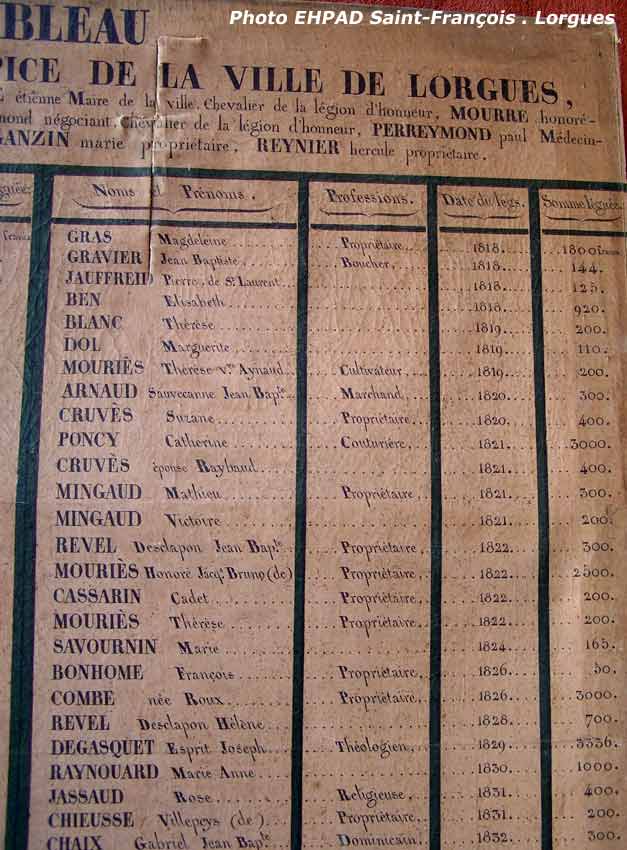 Photo EHPAD Saint-François . Lorgues
BLEAU
PICE DE LA VILLE DE LORGUES,
étienne Maire de la ville, Chevalier de la légion d'honneur, MOURRE honoré-
mond négociant, Chevalier de la légion d'honneur, PERREYMOND paul Médecin-
GANZIN marie propriétaire, REYNIER hercule propriétaire.
Noms et Prénoms. Professions. Date du legs. Somme léguée.
GRAS Magdeleine Propriétaire 1818. 1800 francs
GRAVIER Jean Baptiste Boucher, 1818. 144.
JAUFFREID Pierre, de St Laurent 1818. 125.
BEN Elisabeth 1818. 920.
BLANC Thérèse 1819. 200.
DOL Marguerite 1819. 110.
MOURIÈS Thérèse Vve Aynaud Cultivateur, 1819. 200.
ARNAUD Sauvecanne Jean Baptte Marchand, 1820. 300.
CRUVÈS Suzane Propriétaire 1820. 400.
PONCY Catherine Couturière, 1821. 3000.
CRUVÈS épouse Raybaud 1821. 400.
MINGAUD Mathieu Propriétaire, 1821. 300.
MINGAUD Victoire 1821. 200.
REVEL Desclapon Jean Baptte Propriétaire, 1822. 300.
MOURIÈS Honoré Jacq. Bruno (de) Propriétaire, 1822. 2500.
CASSARIN Cadet Propriétaire, 1822. 200.
MOURIÈS Thérèse Propriétaire, 1822. 200.
SAVOURNIN Marie 1824. 165.
BONHOME François Propriétaire, 1826. 50.
COMBE née Roux Propriétaire, 1826. 3000.
REVEL Desclapon Hélène 1828. 700.
DEGASQUET Esprit Joseph Théologien, 1829. 3336.
RAYNOUARD Marie Anne 1830. 1000.
JASSAUD Rose Religieuse, 1831. 400.
CHIEUSSE Villepeys (de) Propriétaire, 1831. 200.
CHAIX Gabriel Jean Baptte Dominicain, 1832. 300.